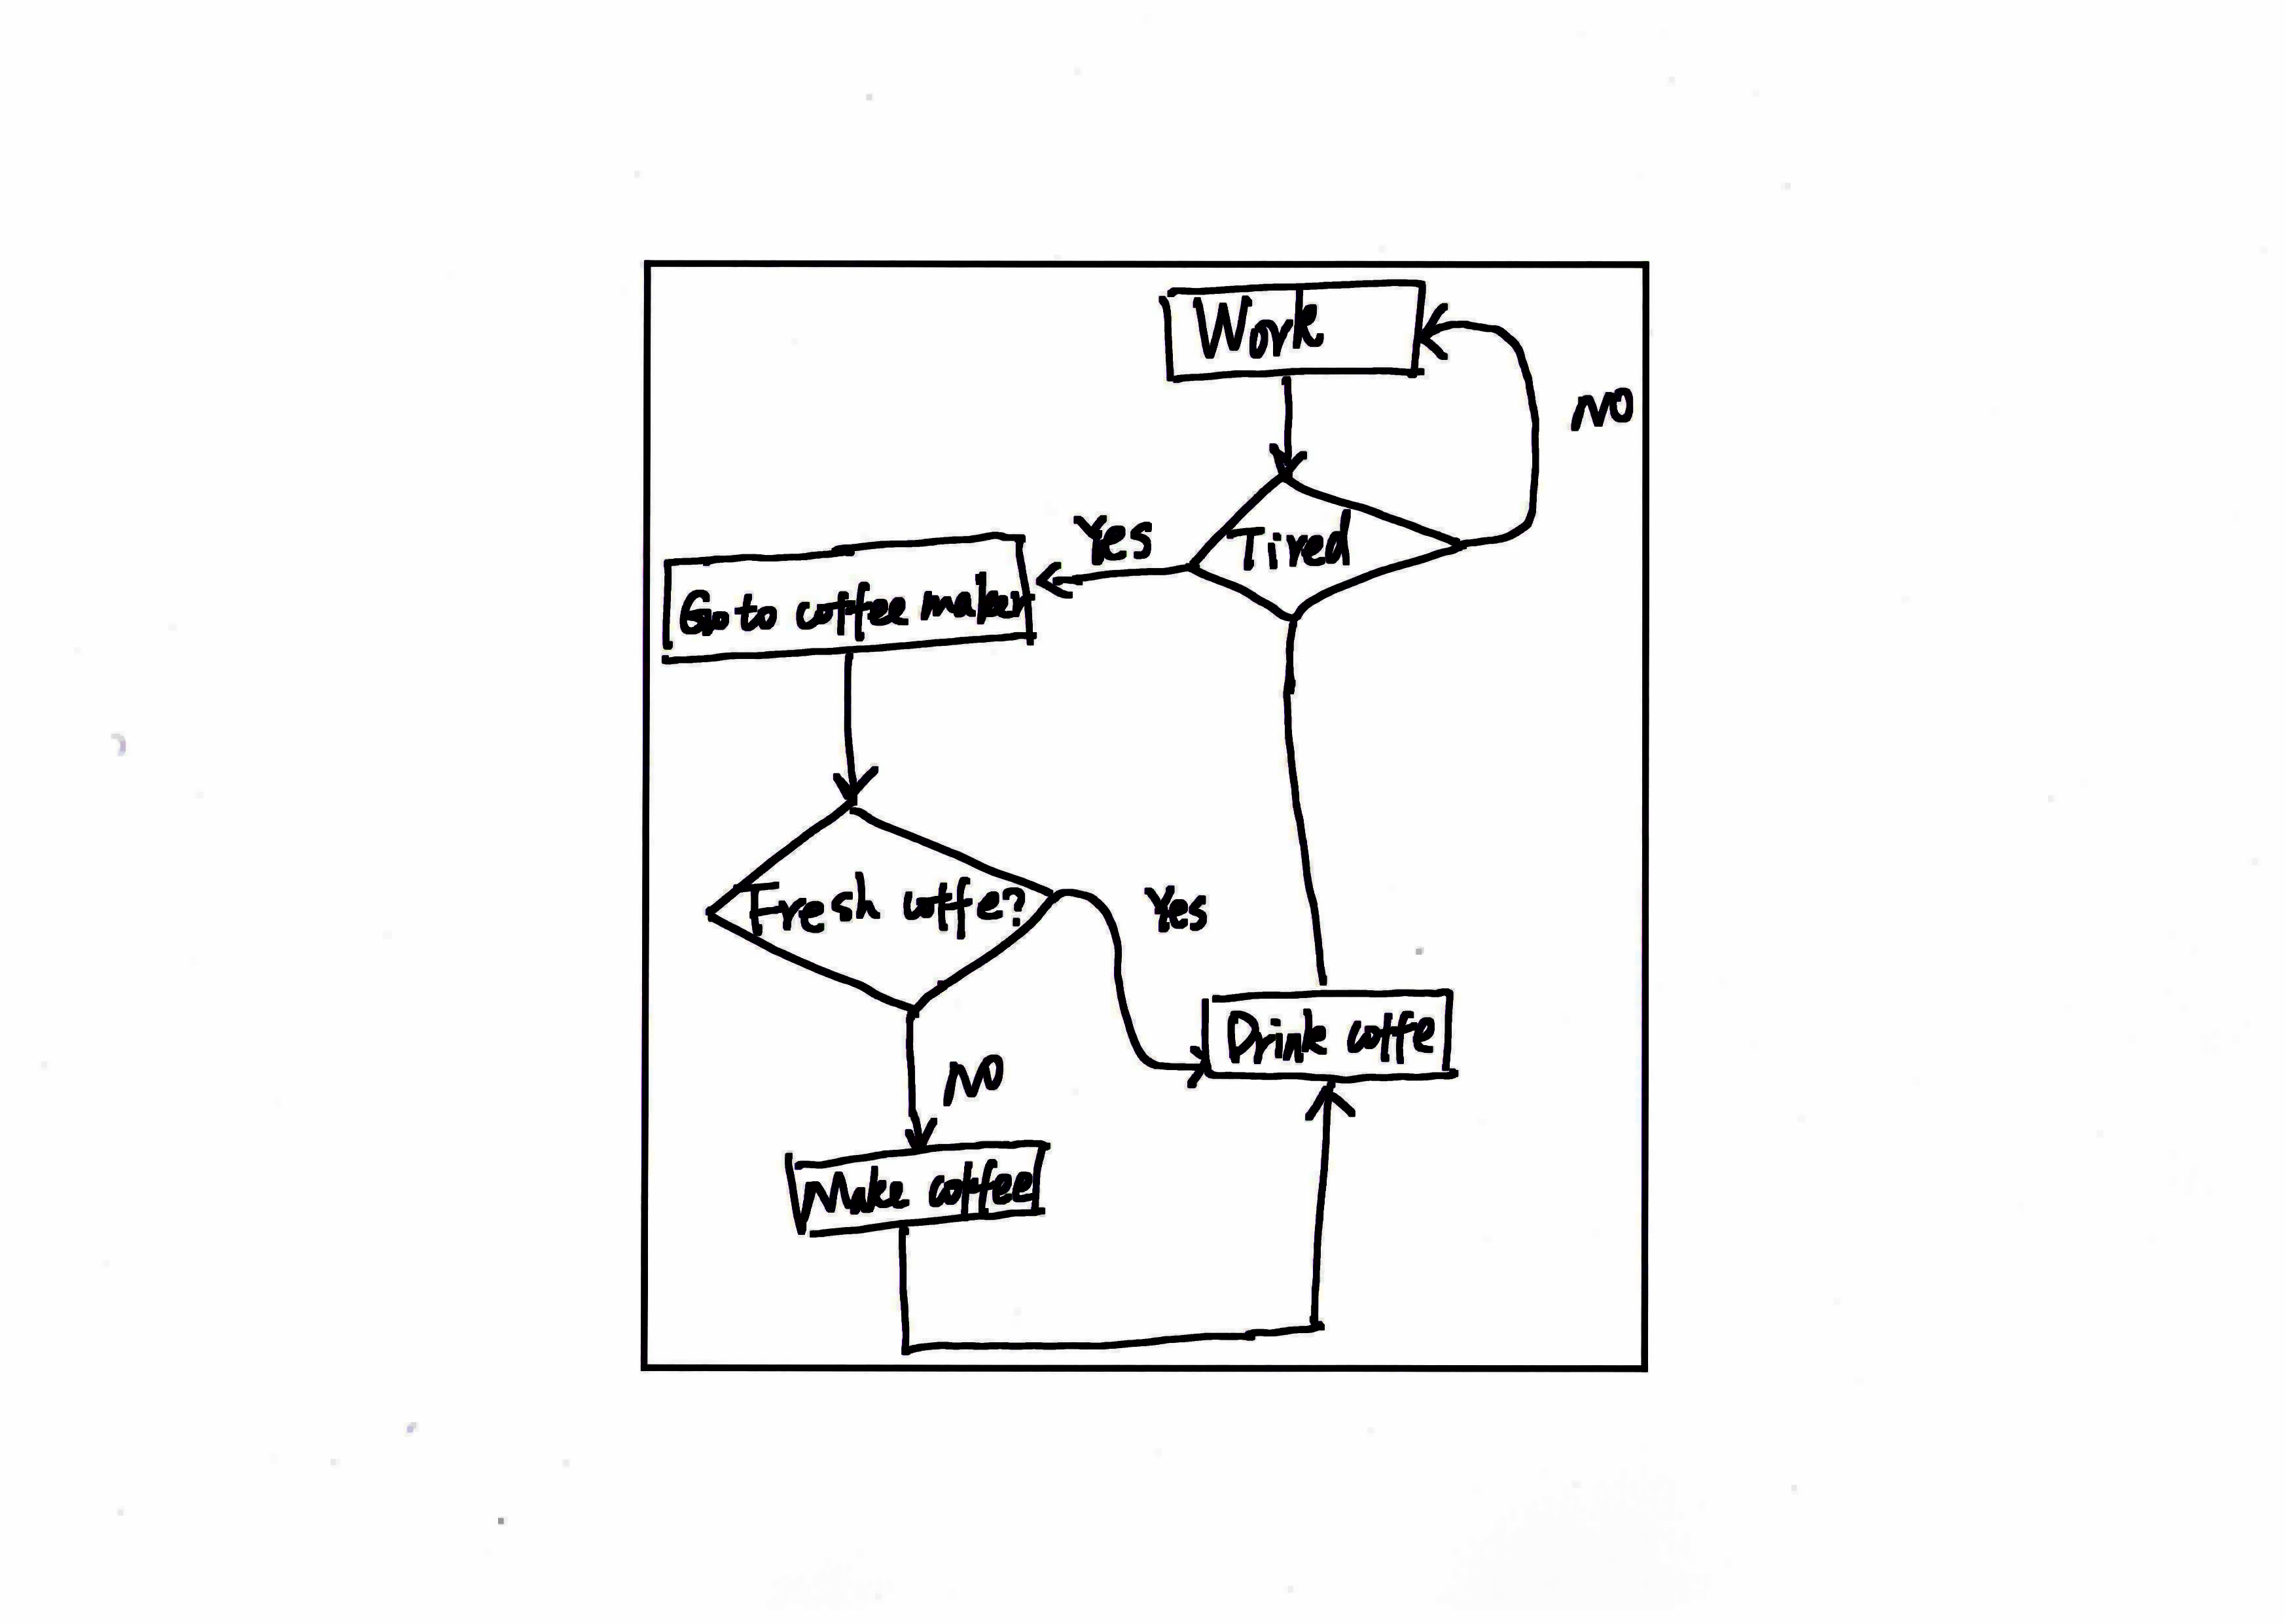 Work
NO
Yes
Tired
Go to coffee maker
Fresh coffe?
Yes
Drink coffe
NO
Make coffee